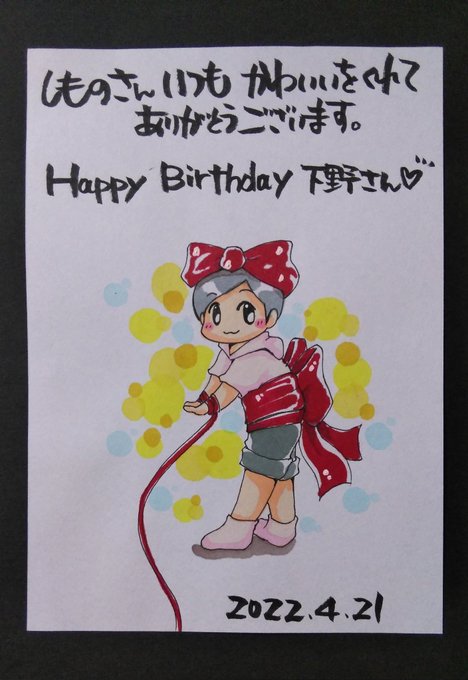 しものさん いつも かわいいをくれて
ありがとうございます。
Happy Birthday 下野さん♡
2022.4.21